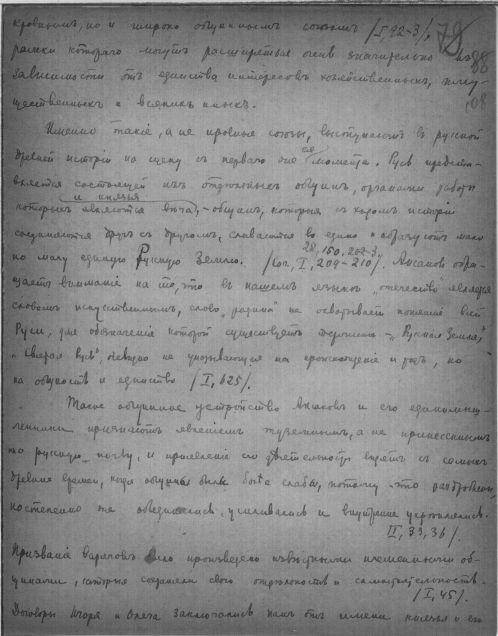 кровнымъ, но и широко общиннымъ союзомъ /I 92-3/, 79
рамки котораго могутъ расширяться очень значительно въ 88
зависимости отъ единства интересовъ хозяйственныхъ, иму-
ществененныхъ и всякихъ иныхъ.
Именно такіе, а не кровные союзы, выступаютъ въ русской
древней исторіи на сцену съ перваго же ея момента. Русь предста-
вляется состоящей изъ отдѣльныхъ общинъ, органами
и князья
которыхъ являются вѣча, – общинъ, которыя съ ходомъ исторіи
соединяются другъ съ другомъ, сливаются во едино и образуютъ мало
28, 150, 202-3,
по малу единую Русскую Землю. I, 209-210/. Аксаковъ обра-
щаетъ вниманіе на то, что въ нашемъ языкѣ "отечество" является
словомъ искусственнымъ, слово "родина" не охватываетъ понятія всей
Руси, для обозначенія которой существуетъ "Русская Земля"
и "Святая Русь", не указывающія на происхожденіе и родъ, но
на общность и единство /I, 625/.
Такое общинное устройство Аксаковъ и его единомыш-
ленники признаютъ явленіемъ туземнымъ, а не принесеннымъ
на русскую почву, и проявленіе его дѣятельности видятъ съ самыхъ
древнихъ временъ, когда общины были болѣе слабы, потому что раздроблены,
постепенно же объединялись, усиливались и внутренне укрѣплялись.
II, 33, 36/.
Призваніе варяговъ было произведено извѣстными племенными об-
щинами, которыя сохраняли свою отдѣльность и самостоятельность.
/I, 45/.
Договоры Игоря и Олега заключались какъ отъ имени князя и его